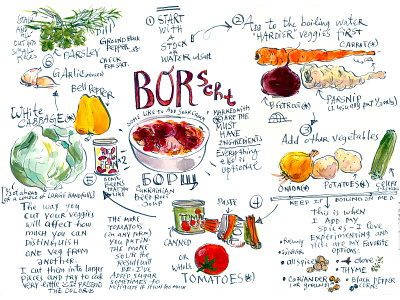 ① START
WITH
A
STOCK
OR
WATER
② Add to the boiling water
"HARDER" veggies first
CARROT(*)
BEETROOT(*)
PARSNIP
(I usually put 1/2 only)
③ Add other Vegetables
ONION(*)
POTATOES(*)
CELERY
KEEP IT BOILING ON MED
④
PASTE
CANNED
OR
WHOLE
TOMATOES(*)
This is when
I add my
spices - I love
EXPERIMENTING and
here are my favorite
options:
Bay
GINGER
SPICES
CLOVE
THYME
CORIANDER
(or ground)
BLACK PEPPER
CORNS
⑤
×2
⑥
GARLIC
PARSLEY
Dill
CUT INTO
SMALL
PIECES
GROUND BLACK
PEPPER
CHECK
FOR SALT
Bell PEPPER
WHITE
CABBAGE(*)
BORSCHT
SOME LIKE TO ADD SOUR CREAM
БОРЩ
UKRAINIAN
BEETROOT
SOUP
MARKED WITH
(*) ARE THE
MUST
HAVE
INGREDIENTS
EVERYTHING
ELSE IS
OPTIONAL
The way you
cut your veggies
will affect how
much you can
distinguish
one veg from
another.
I cut them into larger
pieces and try to cook
very little to PRESENT
THE COLORS
THE MORE
TOMATOES
(IN ANY FORM)
YOU PUT IN -
THE MORE
SOUR THE
RESULT WILL
BE. I'VE
ADDED SUGAR
SOMETIMES TO